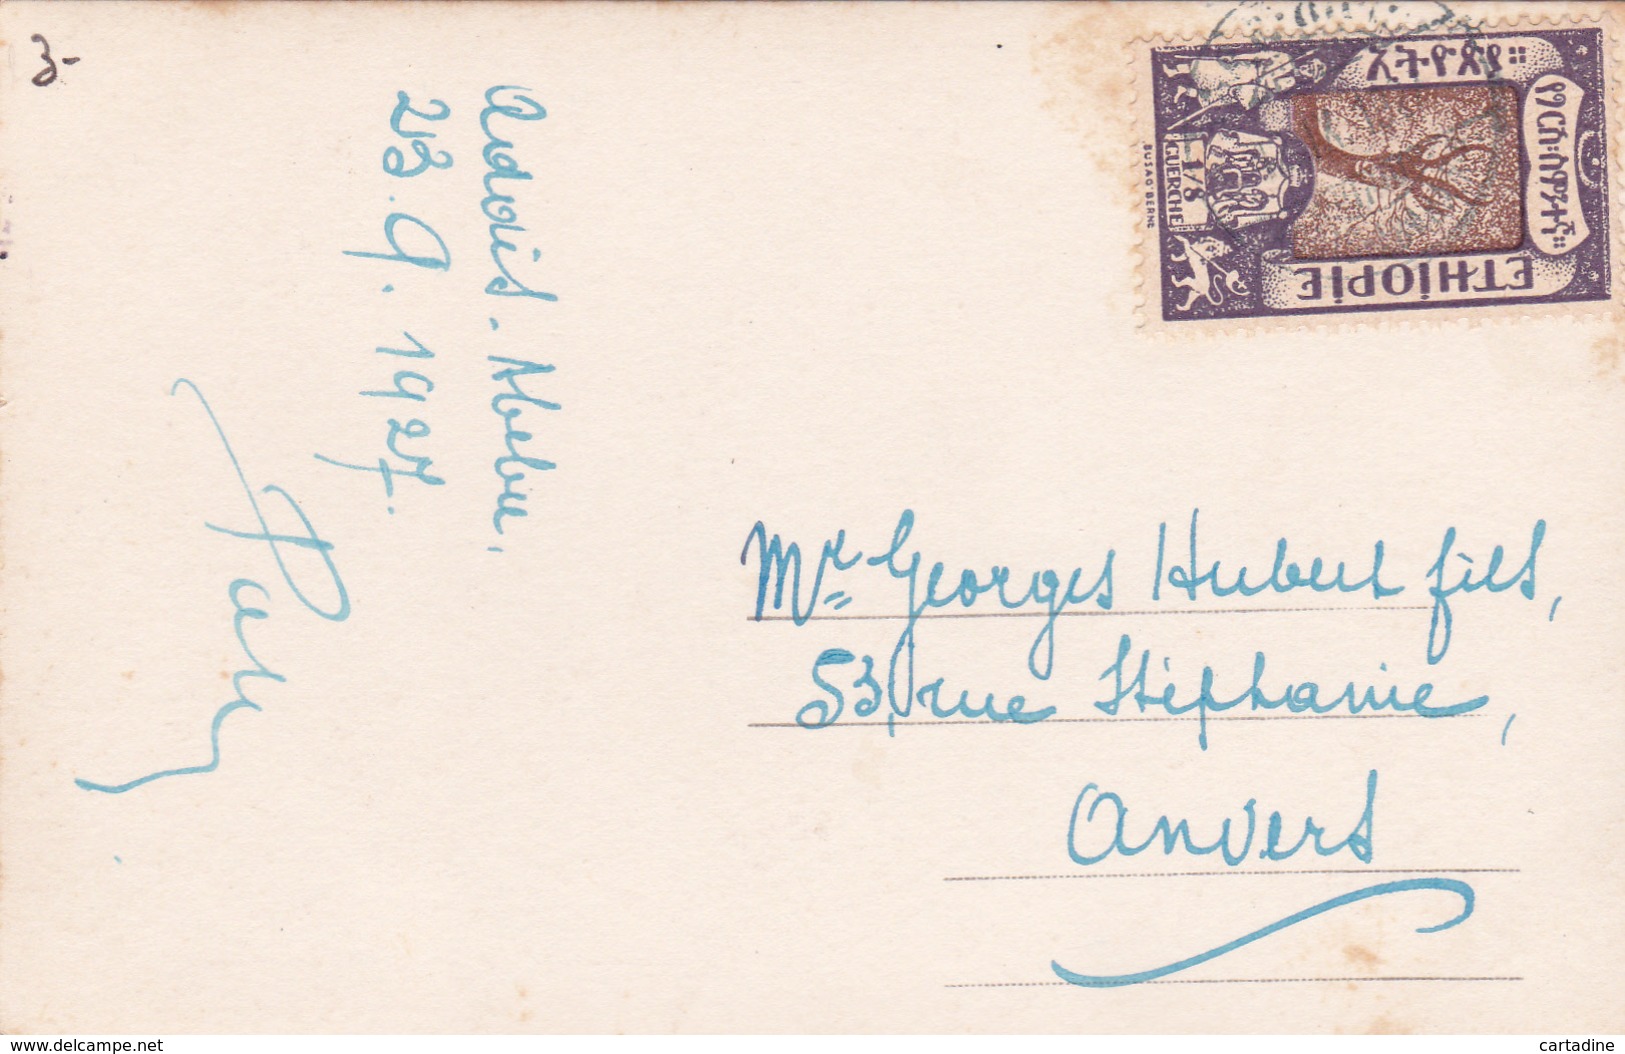 3-
Addis-Abeba,
23.9.1927.
Mr Georges Hubert fils,
53, rue Stéphanie,
Anvers
ኢትዮጵያ።
ETHIOPIE
1/8
GUERCHE
BUSAG BERNE
www.delcampe.net
cartadine